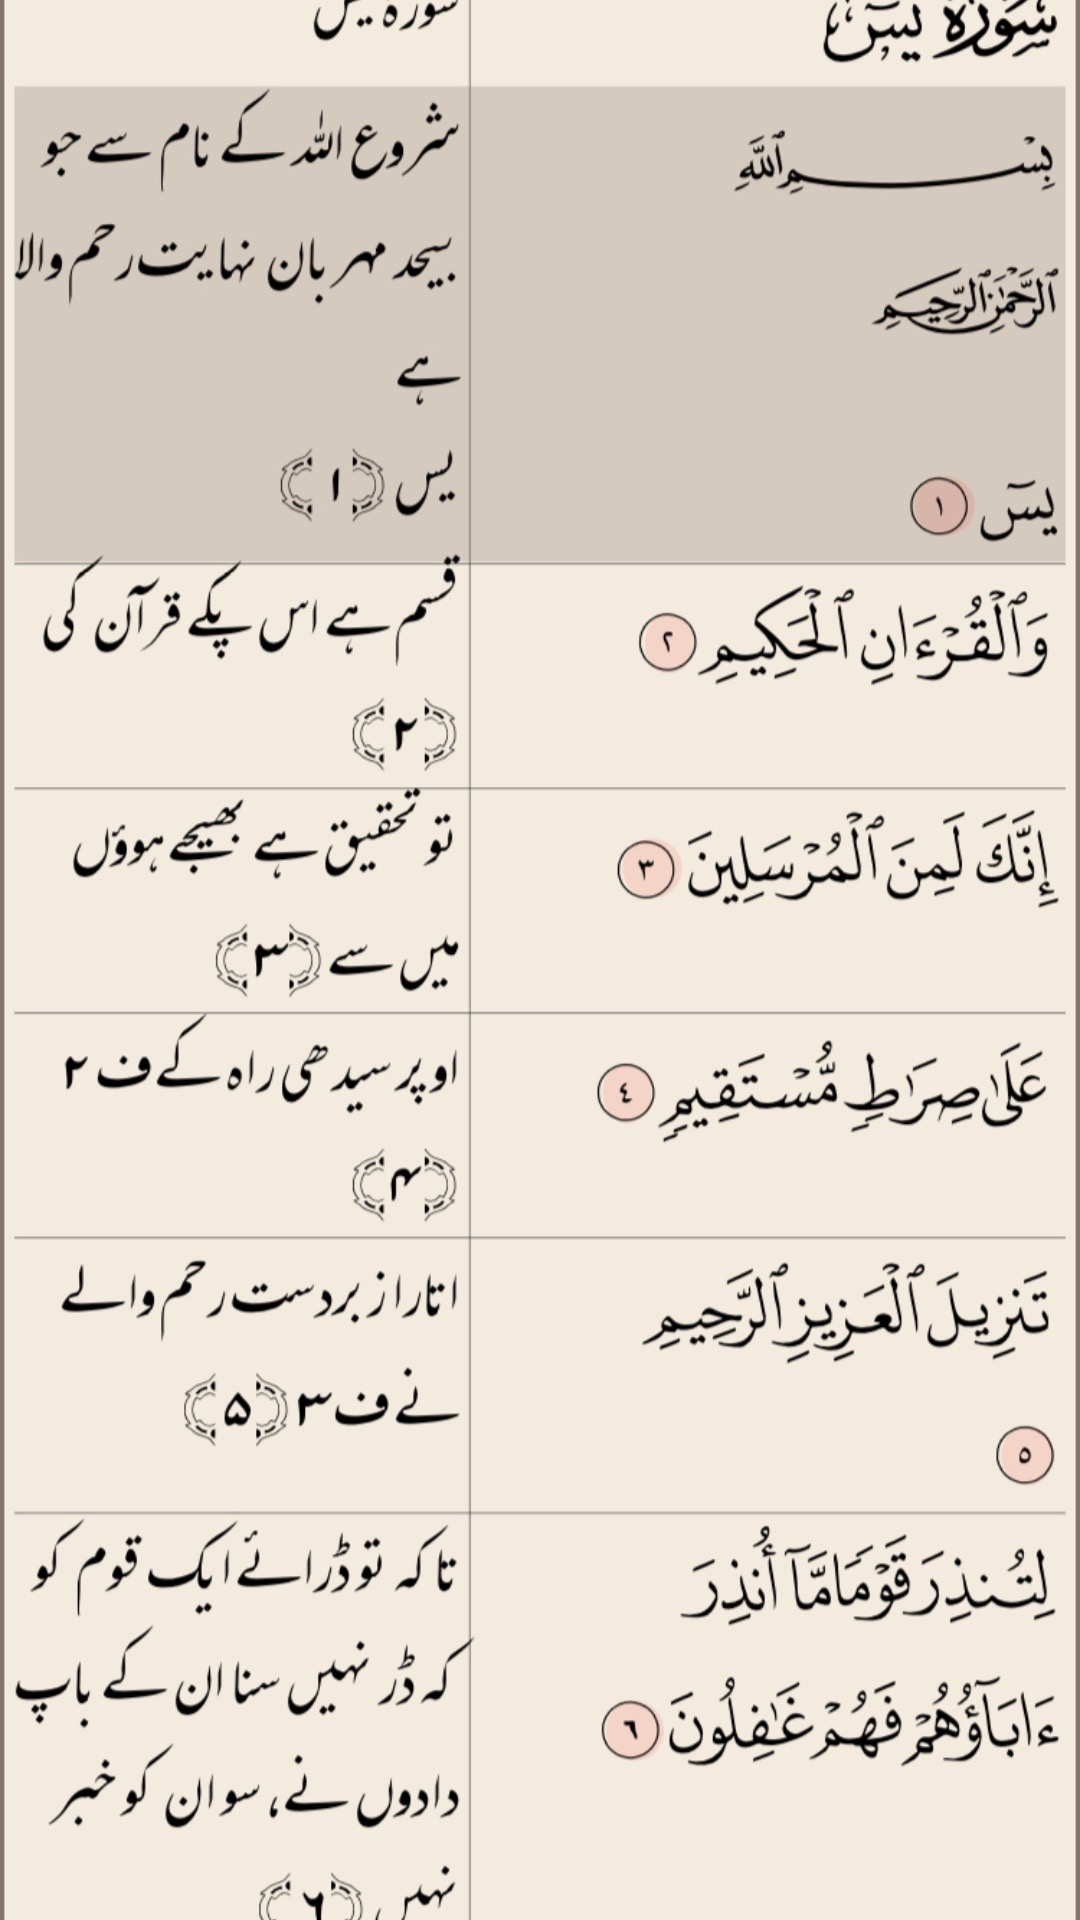 سُورَةُ يسٓ
سورة یٰس
بِسْمِ ٱللَّهِ
ٱلرَّحْمَٰنِ ٱلرَّحِيمِ
يسٓ ١
شروع اللہ کے نام سے جو
بیحد مہربان نہایت رحم والا
ہے
یس ﴿۱﴾
وَٱلْقُرْءَانِ ٱلْحَكِيمِ ٢
قسم ہے اس پکے قرآن کی
﴿۲﴾
إِنَّكَ لَمِنَ ٱلْمُرْسَلِينَ ٣
تو تحقیق ہے بھیجے ہوؤں
میں سے ﴿۳﴾
عَلَىٰ صِرَٰطٍ مُّسْتَقِيمٍ ٤
اوپر سیدھی راہ کے ف ۲
﴿۴﴾
تَنزِيلَ ٱلْعَزِيزِ ٱلرَّحِيمِ
٥
اتارا زبردست رحم والے
نے ف ۳ ﴿۵﴾
لِتُنذِرَ قَوْمًا مَّآ أُنذِرَ
ءَابَآؤُهُمْ فَهُمْ غَٰفِلُونَ ٦
تاکہ تو ڈرائے ایک قوم کو
کہ ڈر نہیں سنا ان کے باپ
دادوں نے، سو ان کو خبر
نہیں ﴿۶﴾